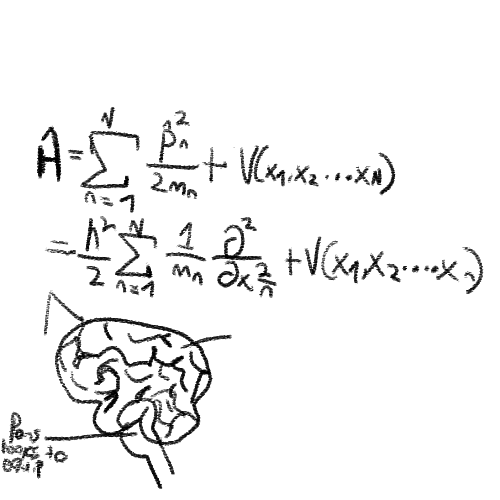 Ĥ = ∑_{n=1}^{N} p̂_n^2 / 2m_n + V(x_1, x_2 ... x_N)
= ħ^2 / 2 ∑_{n=1}^{N} 1 / m_n ∂^2 / ∂x_n^2 + V(x_1, x_2 .... x_n)
Pons
to